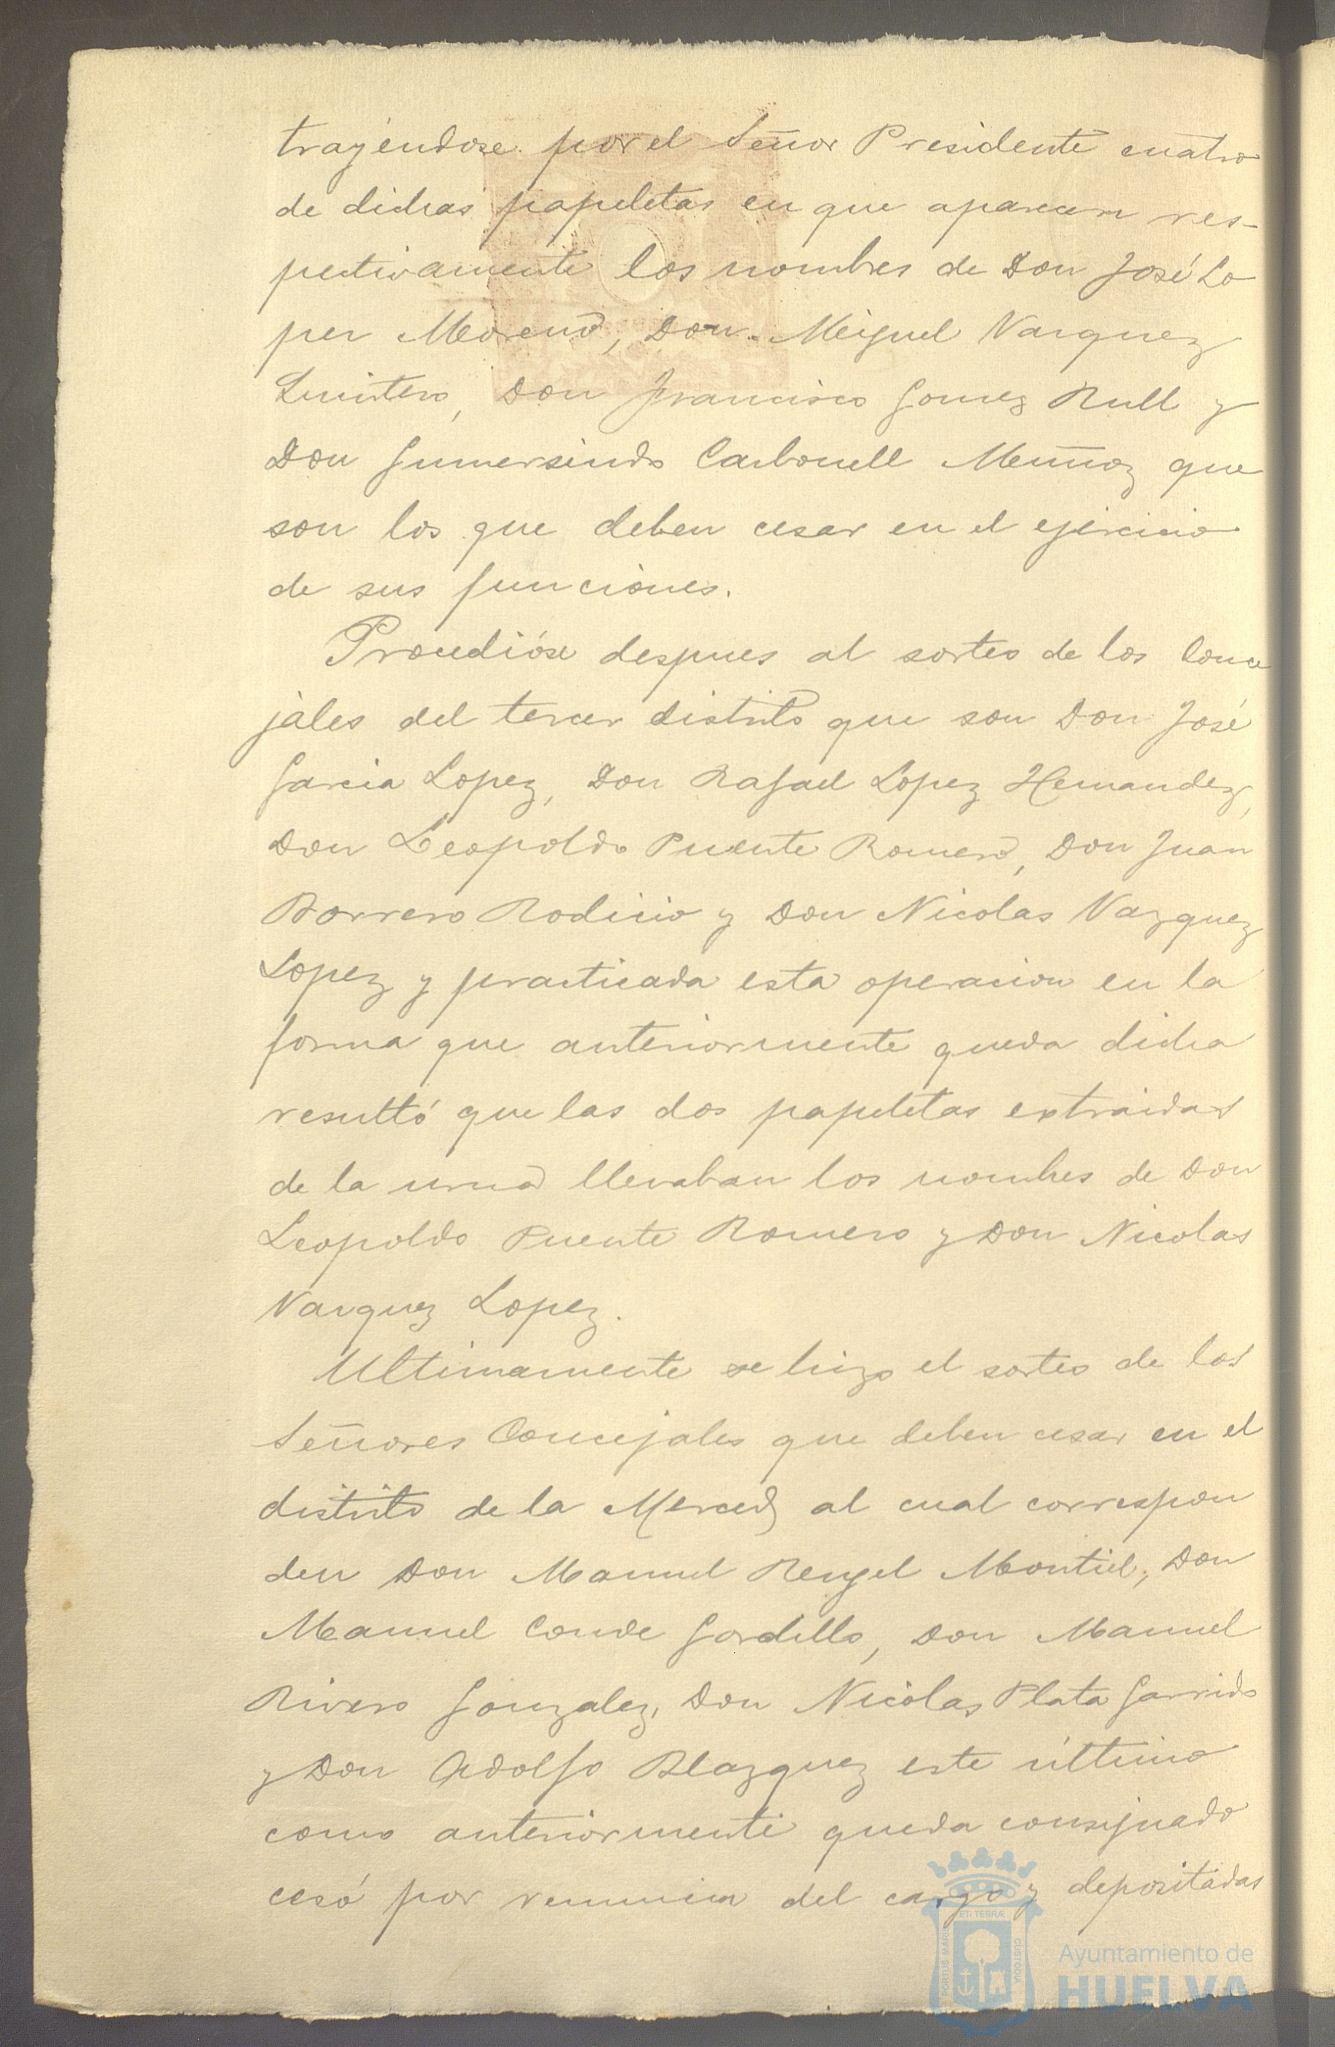 trayéndose por el Señor Presidente cuatro
de dichas papeletas en que aparecen res-
pectivamente los nombres de Don José Lo
pez Moreno, Don Miguel Vazquez
Quintero, Don Francisco Gomez Rull y
Don Gumersindo Carbonell Muñoz que
son los que deben cesar en el ejercicio
de sus funciones.
Procedióse despues al sorteo de los Conce
jales del tercer distrito que son Don José
Garcia Lopez, Don Rafael Lopez Hernandez,
Don Leopoldo Puente Romero, Don Juan
Borrero Rodicio y Don Nicolas Vazquez
Lopez y practicada esta operacion en la
forma que anteriormente queda dicha
resultó que las dos papeletas extraidas
de la urna llevaban los nombres de Don
Leopoldo Puente Romero y Don Nicolas
Vazquez Lopez.
Ultimamente se hizo el sorteo de los
Señores Concejales que deben cesar en el
distrito de la Merced al cual correspon
den Don Manuel Rengel Montiel, Don
Manuel Conde Gordillo, Don Manuel
Rivero Gonzalez, Don Nicolas Plata Garrido
y Don Adolfo Blazquez este último
como anteriormente queda consignado
cesó por renuncia del cargo y depositadas
PORTUS MARIS ET TERRÆ CUSTODIA
Ayuntamiento de
HUELVA